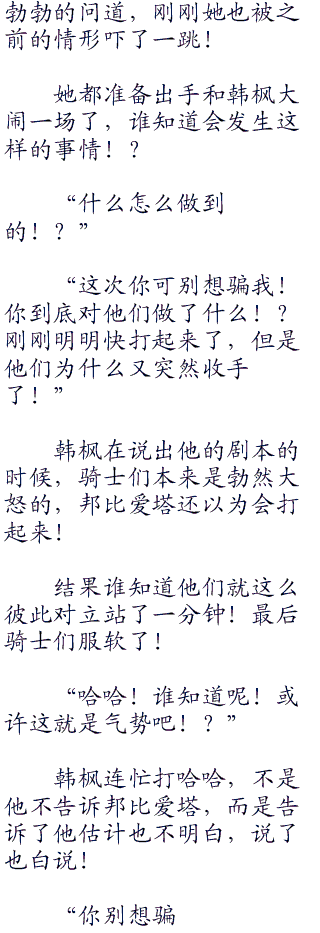 勃勃的问道，刚刚她也被之
前的情形吓了一跳！
她都准备出手和韩枫大
闹一场了，谁知道会发生这
样的事情！？
“什么怎么做到
的！？”
“这次你可别想骗我！
你到底对他们做了什么！？
刚刚明明快打起来了，但是
他们为什么又突然收手
了！”
韩枫在说出他的剧本的
时候，骑士们本来是勃然大
怒的，邦比爱塔还以为会打
起来！
结果谁知道他们就这么
彼此对立站了一分钟！最后
骑士们服软了！
“哈哈！谁知道呢！或
许这就是气势吧！？”
韩枫连忙打哈哈，不是
他不告诉邦比爱塔，而是告
诉了他估计也不明白，说了
也白说！
“你别想骗